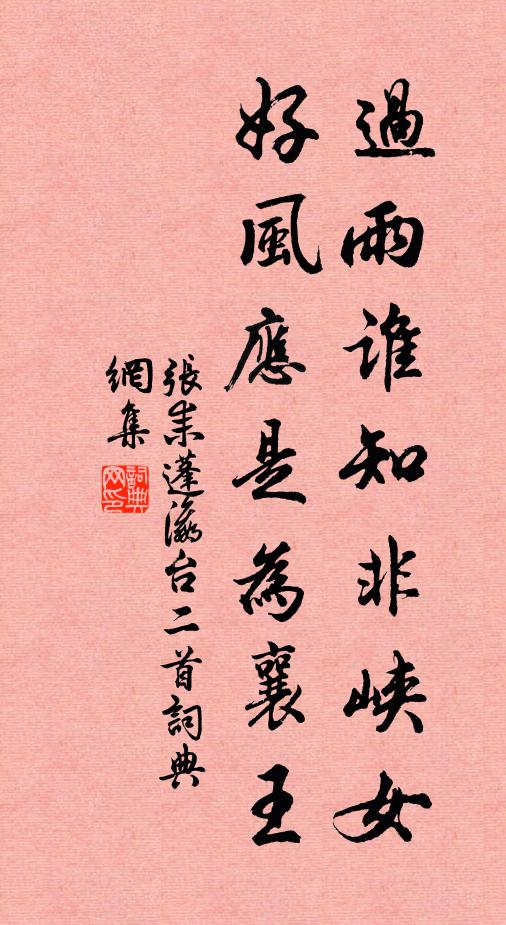 過雨誰知非峽女
好風應是為襄王
張耒蓬瀛台二首詞典
網集
詞典
网印